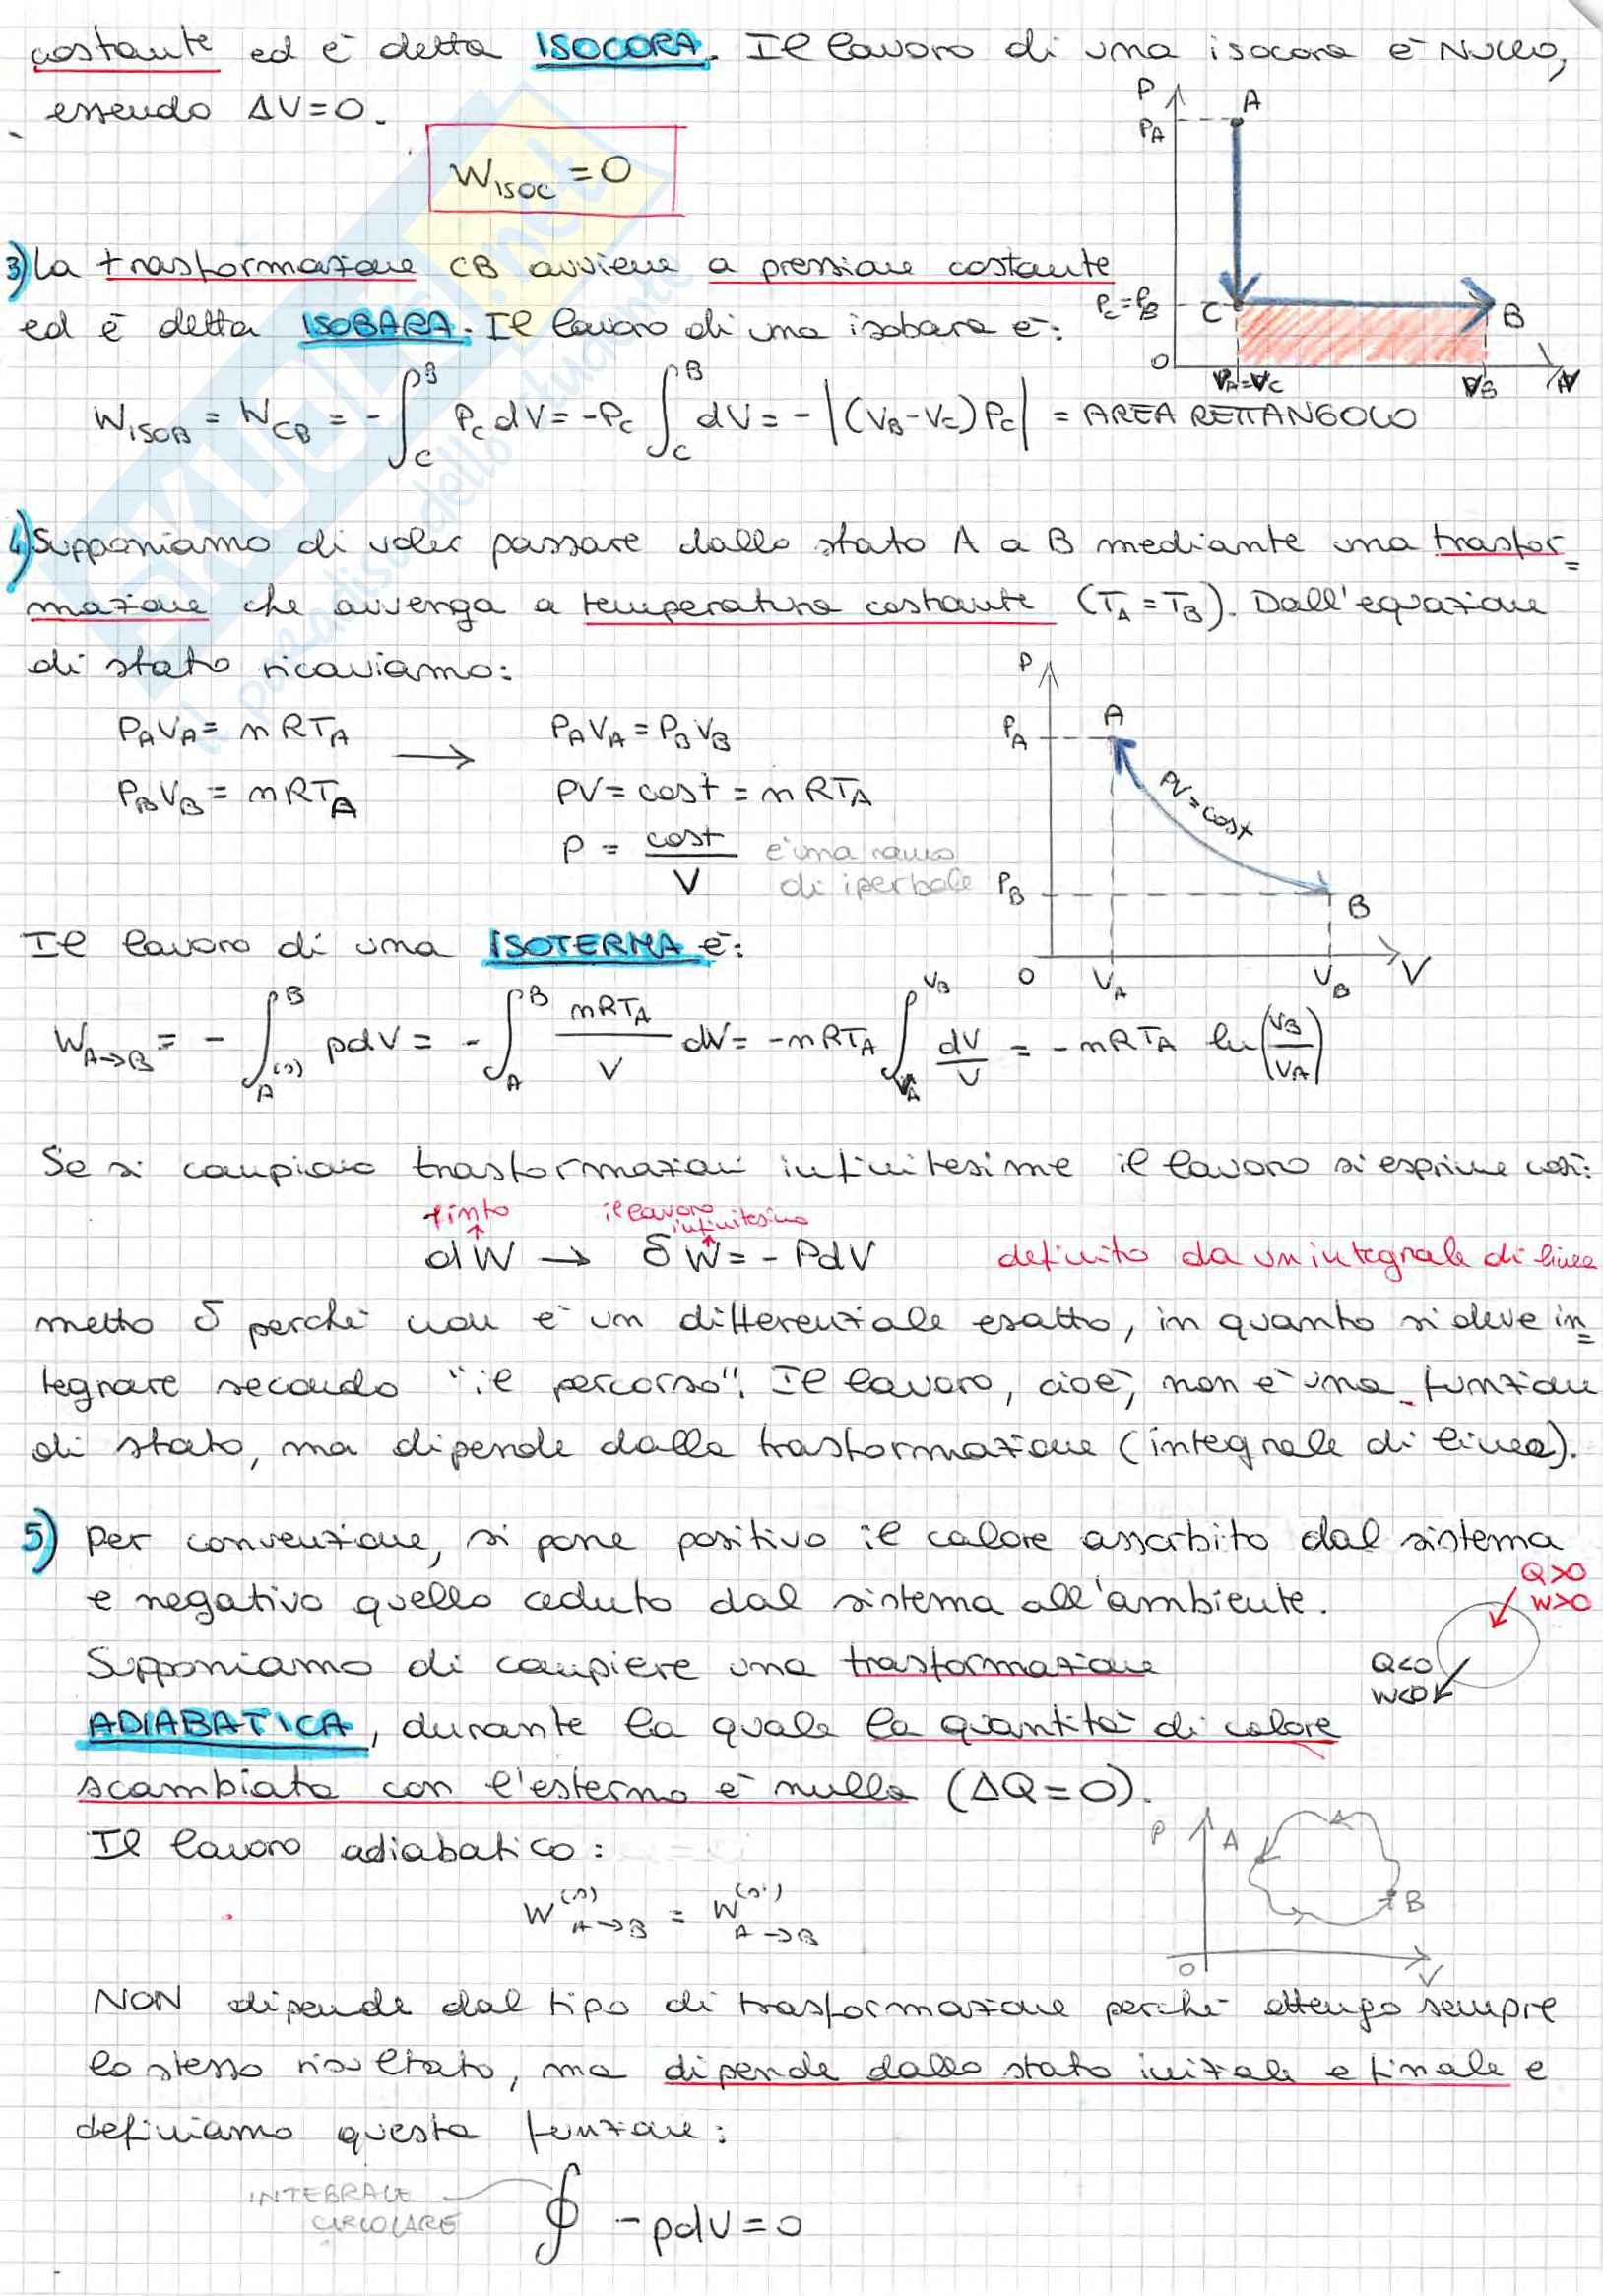 costante ed è detta ISOCORA. Il lavoro di una isocora è NULLO,
essendo ΔV=0.
W_ISOC = 0
P
A
P_A
P_C=P_B
C
B
0
V_A=V_C
V_B
V
3) La trasformazione CB avviene a pressione costante
ed è detta ISOBARA. Il lavoro di una isobara è:
W_ISOB = W_CB = -∫_C^B P_C dV = -P_C ∫_C^B dV = -|(V_B-V_C)P_C| = AREA RETTANGOLO
4) Supponiamo di voler passare dallo stato A a B mediante una trasfor=
mazione che avvenga a temperatura costante (T_A=T_B). Dall'equazione
di stato ricaviamo:
P_A V_A = nRT_A → P_A V_A = P_B V_B
P_B V_B = nRT_A PV = cost = nRT_A
P = cost/V è una ramo
di iperbole
P
P_A
A
PV=cost
P_B
B
0
V_A
V_B
V
Il lavoro di una ISOTERMA è:
W_A→B = -∫_A^B pdV = -∫_A^B nRT_A/V dV = -nRT_A ∫_V_A^V_B dV/V = -nRT_A ln(V_B/V_A)
Se si compiono trasformazioni infinitesime il lavoro si esprime così:
finto
il lavoro
infinitesimo
dW → δW = -PdV definito da un integrale di linea
metto δ perchè non è un differenziale esatto, in quanto si deve in=
tegrare secondo "il percorso". Il lavoro, cioè, non è una funzione
di stato, ma dipende dalla trasformazione (integrale di linea).
5) Per convenzione, si pone positivo il calore assorbito dal sistema
e negativo quello ceduto dal sistema all'ambiente.
Q>0
W>0
Q<0
W<0
Supponiamo di compiere una trasformazione
ADIABATICA, durante la quale la quantità di calore
scambiata con l'esterno è nulla (ΔQ=0).
Il lavoro adiabatico:
W^(s)_A→B = W^(s')_A→B
P
A
B
0
V
NON dipende dal tipo di trasformazione perchè ottengo sempre
lo stesso risultato, ma dipende dallo stato iniziale e finale e
definiamo questa funzione:
INTEGRALE
CIRCOLARE
∮ -pdV=0
SKUOLA.net
il paradiso dello studente